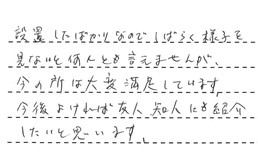 設置したばかりなのでしばらく様子を
見ないと何んとも言えませんが、
今の所は大変満足しています。
今後よければ友人知人にも紹介
したいと思います。